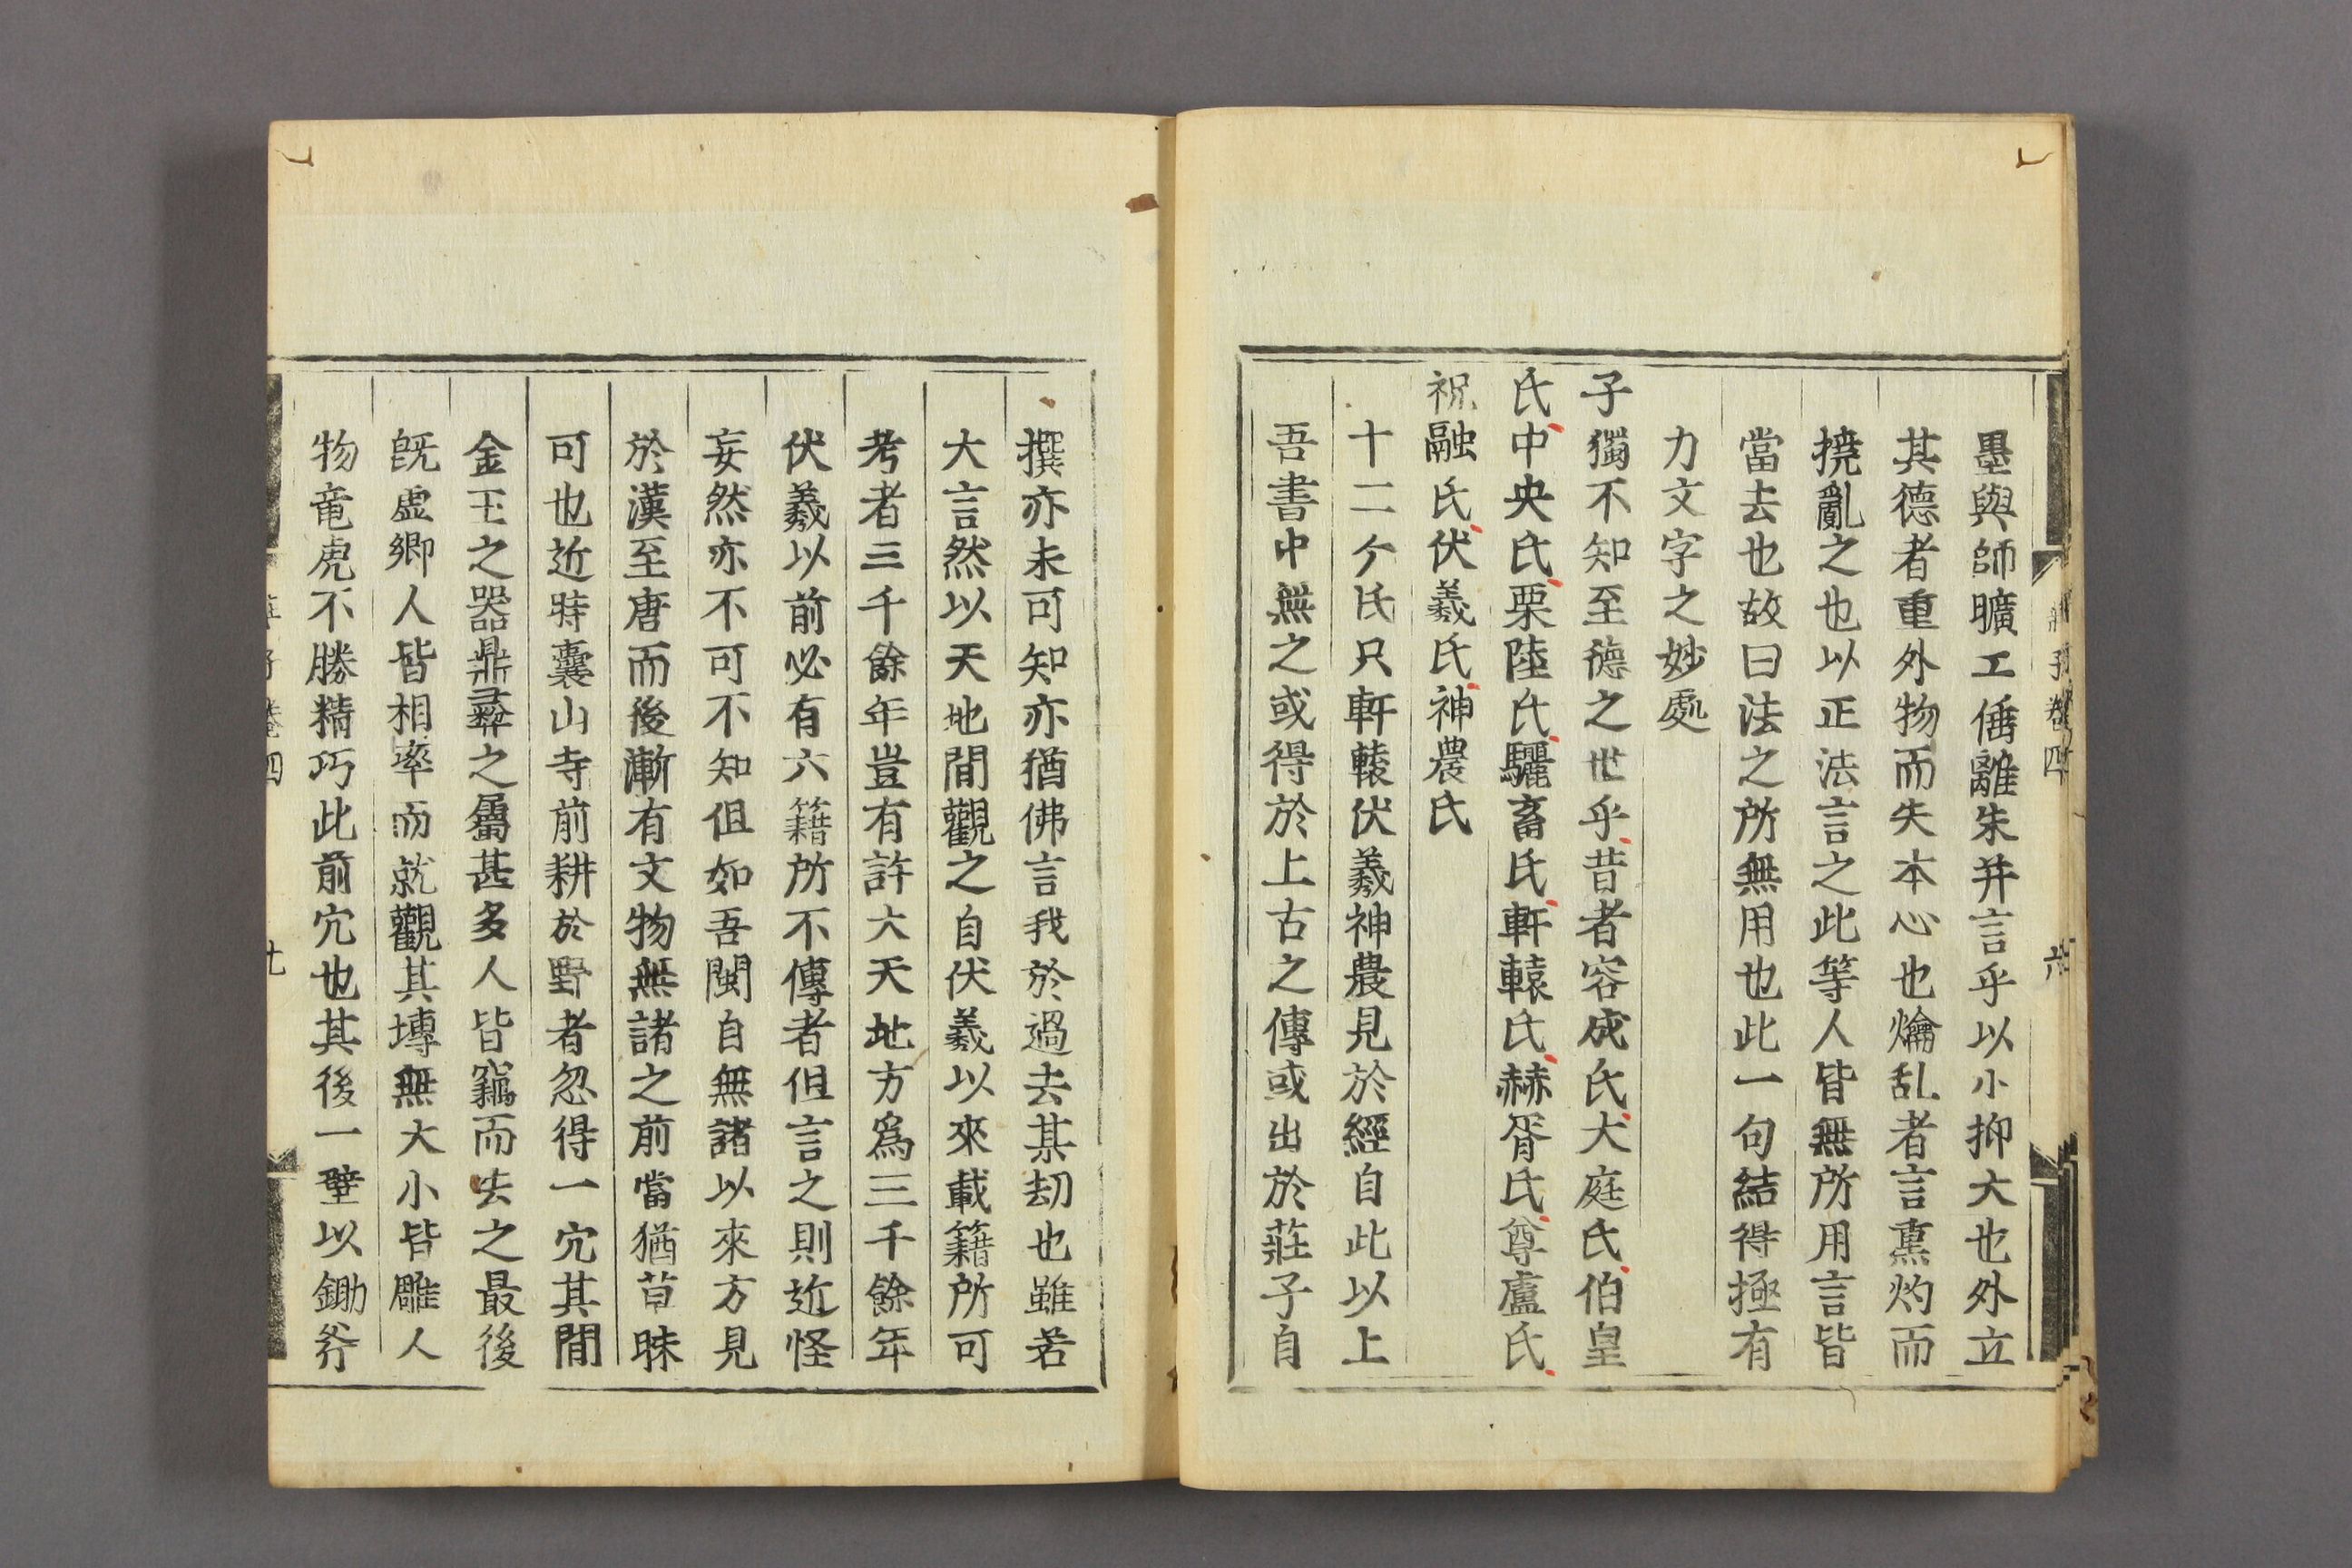 墨與師曠工倕離朱并言乎以小抑大也外立
其德者重外物而失本心也爚乱者言熏灼而
撓亂之也以正法言之此等人皆無所用言皆
當去也故曰法之所無用也此一句結得極有
力文字之妙處
子獨不知至德之世乎昔者容成氏大庭氏伯皇
氏中央氏栗陸氏驪畜氏軒轅氏赫胥氏尊盧氏
祝融氏伏羲氏神農氏
十二个氏只軒轅伏羲神農見於經自此以上
吾書中無之或得於上古之傳或出於莊子自
撰亦未可知亦猶佛言我於過去某劫也雖若
大言然以天地間觀之自伏羲以來載籍所可
考者三千餘年豈有許大天地方為三千餘年
伏羲以前必有六籍所不傳者但言之則近怪
妄然亦不可不知但如吾閩自無諸以來方見
於漢至唐而後漸有文物無諸之前當猶草昧
可也近時囊山寺前耕於野者忽得一穴其間
金玉之器鼎彝之屬甚多人皆竊而去之最後
既虚鄉人皆相率而就觀其塼無大小皆雕人
物竜虎不勝精巧此前穴也其後一壁以鋤斧